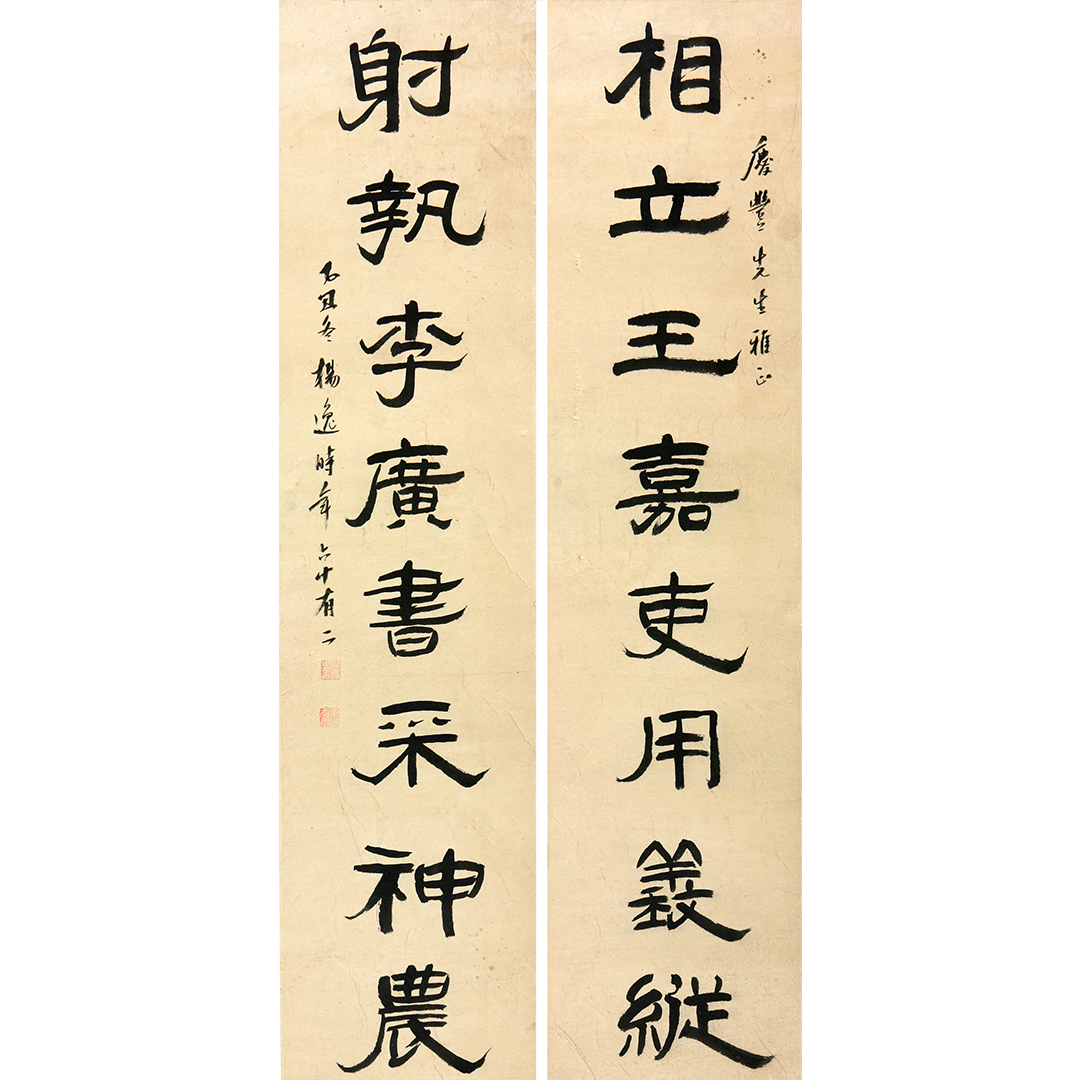 慶豐先生雅正
相立王嘉吏用義縱
射執李廣書采神農
乙丑冬楊逸時年六十有二